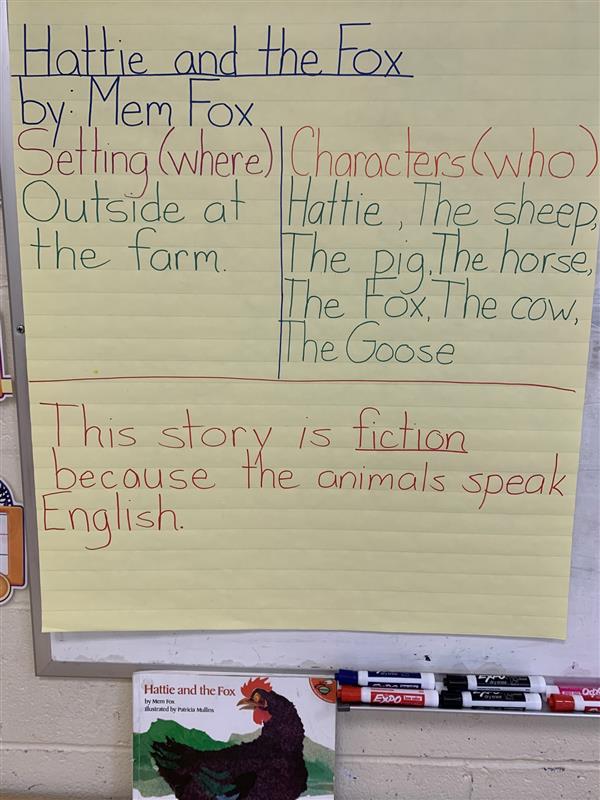 Hattie and the Fox
by: Mem Fox
Setting (where)
Outside at
the farm.
Characters (who)
Hattie, The sheep,
The pig, The horse,
The Fox, The cow,
The Goose
This story is fiction
because the animals speak
English.
Hattie and the Fox
by Mem Fox
illustrated by Patricia Mullins
EXPO
EXPO
EXPO
EXPO